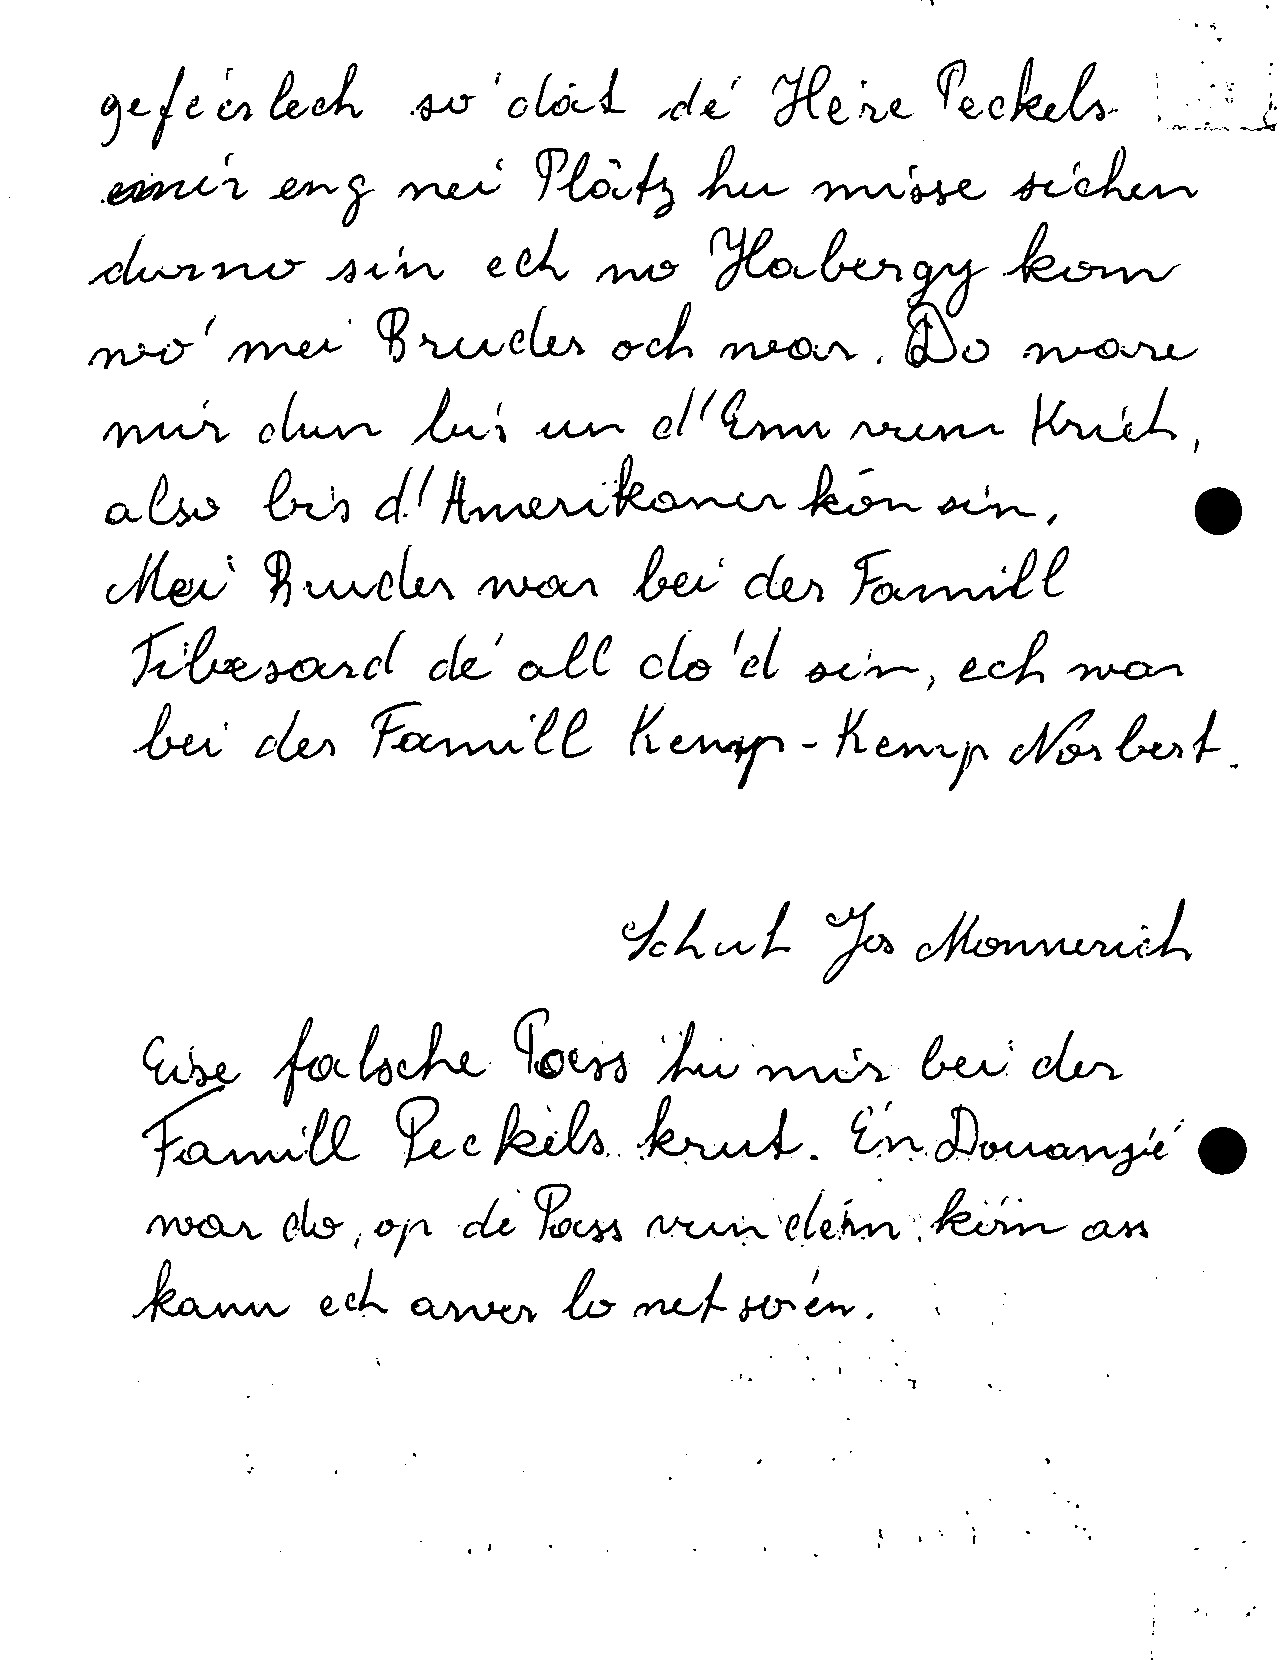 geféerlech so' dât dé Hére Peckels
mir eng nei Plâtz hu misse sichen
durno sin ech no Habergy kom
wo' mei Bruder och war. Do ware
mir dun bis un d'Enn vum Krich,
also bis d'Amerikaner kôn sin.
Mei Bruder war bei der Famill
Tibesard dé all do'd sin, ech war
bei der Famill Kemp-Kemp Norbert.
Schut Jos Monnerich
Eise falsche Pass hu mir bei der
Famill Peckels krut. E'n Douangié
war do, op de Pass vun dém kóm ass
kann ech awer lo net soén.